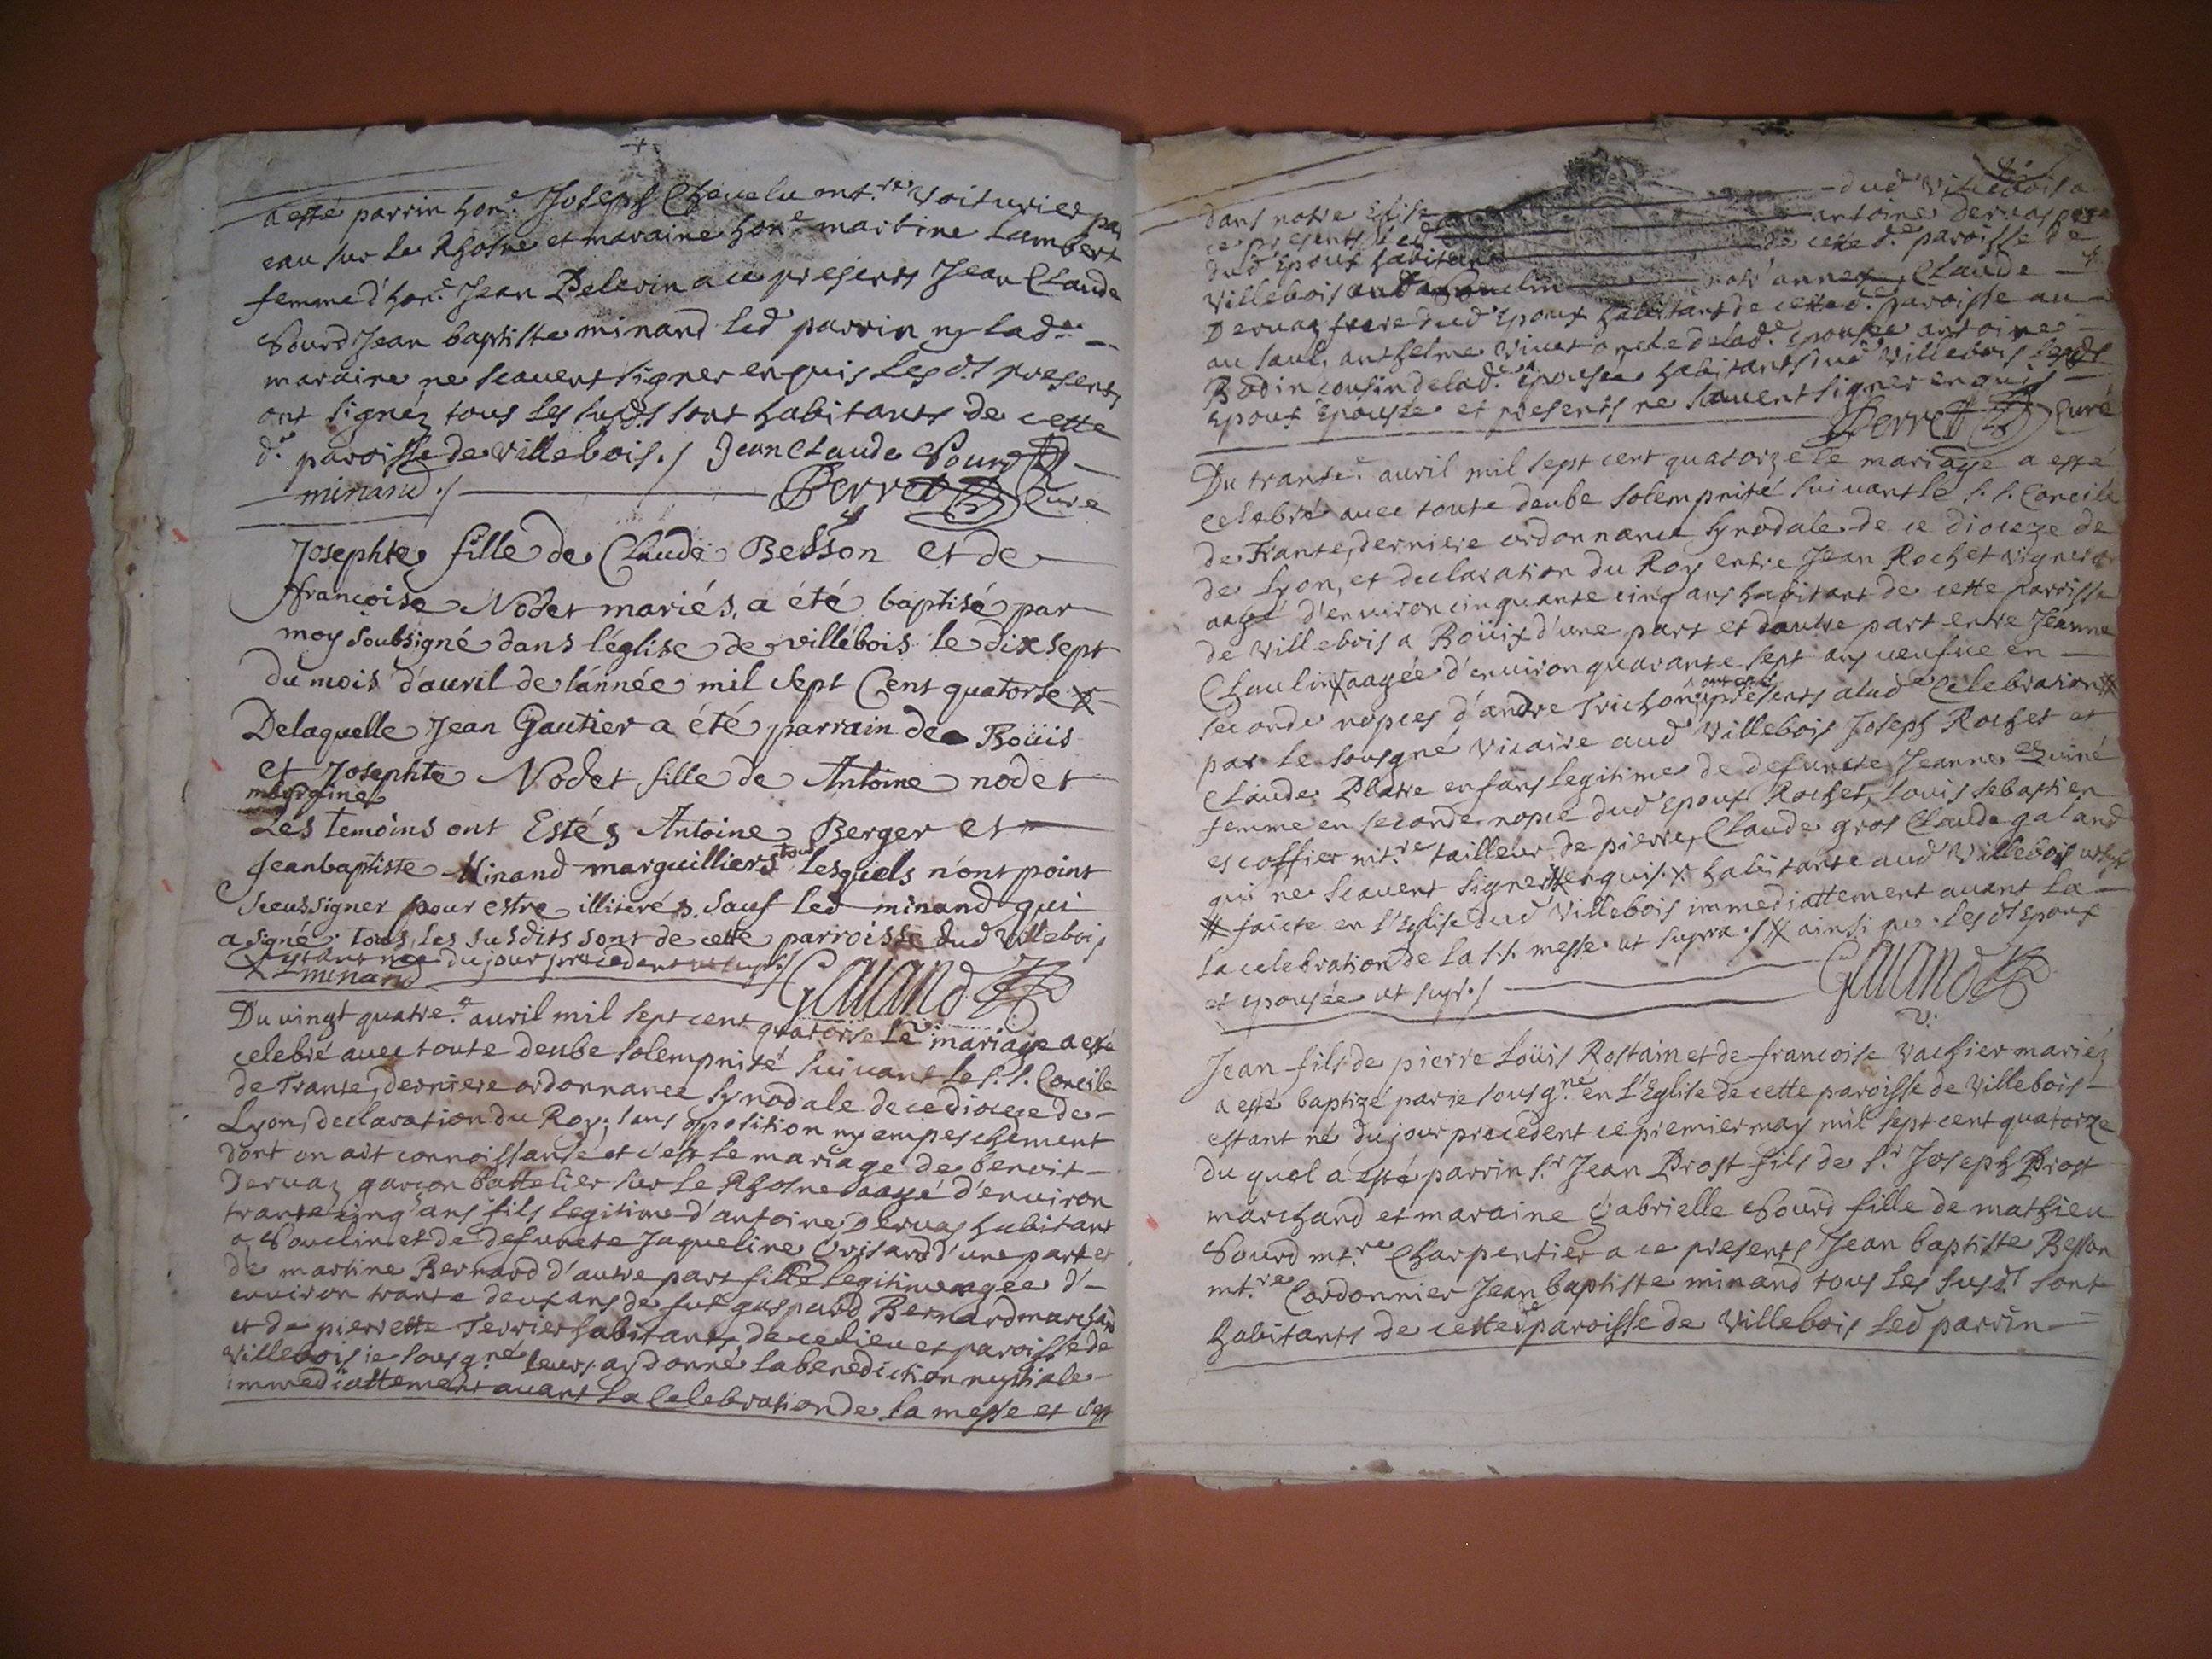 a esté parrin hon.e Joseph Chevelu mt.re voiturier par
eau sur le Rhosne et maraine hon.e martine Lambert
femme d'hon.e Jean Pelerin a ce presents Jean Claude
Sourd Jean baptiste minand led parrin ny lad.e
maraine ne scavent signer enquis Lesd.ts presents
ont signéz tous les susd.ts sont habitants de cette
d.e paroisse de villebois ./ Jean Claude Sourd
minand ./ Perret Curé
Josephte fille de Claude Besson et de
francoise Nodet mariés, a été baptisé par
moy soubsigné dans l'église de villebois le dix sept
du mois d'auril de l'année mil sept Cent quatorse x
Delaquelle Jean Gautier a été parrain de Boüis
et Josephte Nodet fille de Antoine nodet
marraine
Les temoins ont Estés Antoine Berger et
Jeanbaptiste Minand marguilliers tous Lesquels n'ont point
sceus signer pour estre illiterés. sauf led minand qui
a signé. tous les susdits sont de cette parroisse dud villebois
x estant née du jour precedent ut supr. /
minand Galand
Du vingt quatre.e auril mil sept cent quatorse Le mariage a esté
celebré avec toute deube solempnité suivant le s.s. Concile
de Trante, derniere ordonnance synodale de ce diocece de
Lyon, declaration du Roy, sans oposition ny empeschement
dont on ait connoissance et c'est le mariage de benoit
Dervaz garcon battelier sur le Rhosne aagé d'environ
trante cinq ans fils legitime d'antoine Dervas habitant
a Souclin et de defuncte Jaqueline Grisard d'une part et
de martine Bernard d'autre part fille legitime agée d'
environ trante deux ans de fut gaspard Bernard marchand
et de pierrette Terrier habitants de ce lieu et paroisse de
villebois ie sousg.né leurs ay donné la benediction nuptiale
immediattement avant La Celebration de La messe et c'est
dans notre Eglise dud villebois a
ce presents led antoine dervas pere
dud Epoux habitant de cette d.e paroisse de
villebois aud Souclin notr'annexe, Claude
Dervaz frere dud Epoux habitant de cette d.e paroisse au
au sault, anthelme vivet oncle de lad.e Epousée antoine
Bodin cousin de lad.e Epousée habitants dud villebois lesd.ts
Epoux Epousée et presents ne scavent signer enquis
Perret Curé
Du trante.e auril mil sept cent quatorze le mariage a esté
celebré avec toute deube solempnité suivant le s.s. Concile
de Trante, derniere ordonnance synodale de ce dioceze de
de Lyon, et declaration du Roy entre Jean Rochet vigneron
aagé d'environ cinquante cinq ans habitant de cette paroisse
de villebois a Boüix d'une part et d'autre part entre Jeanne
Chaulin x aagée d'environ quarante sept ans veufve en
seconde nopces d'andre Trichon, ont esté presents a lad Celebration #
par le sousgné vicaire aud villebois Joseph Rochet et
Claude Platre enfans legitimes de defuncte Jeanne
femme en seconde nopce dud Epoux Rochet, Louis Sebastien
escoffier mt.re tailleur de pierre, Claude gros Claude galand
qui ne scavent signer # enquis. x habitante aud villebois ut supr.
# faicte en l'Eglise dud villebois immediattement avant la
la celebration de la s.s. messe ut supra ./ # ainsi que lesd.ts Epoux
et epousée ut supr. / Galand
V.
Jean fils de pierre Loüis Rostain et de francoise vachier mariéz
a esté baptizé par ie sousg.né en l'Eglise de cette paroisse de villebois
estant né du jour precedent ce premier may mil sept cent quatorze
du quel a esté parrin s.r Jean Prost fils de s.r Joseph Prost
marchand et maraine Gabrielle Sourd fille de mathieu
Sourd mt.re Charpentier a ce presents Jean baptiste Besson
mt.re Cordonnier Jean baptiste minand tous les susd.ts sont
habitants de cette d.e paroisse de villebois led parrin